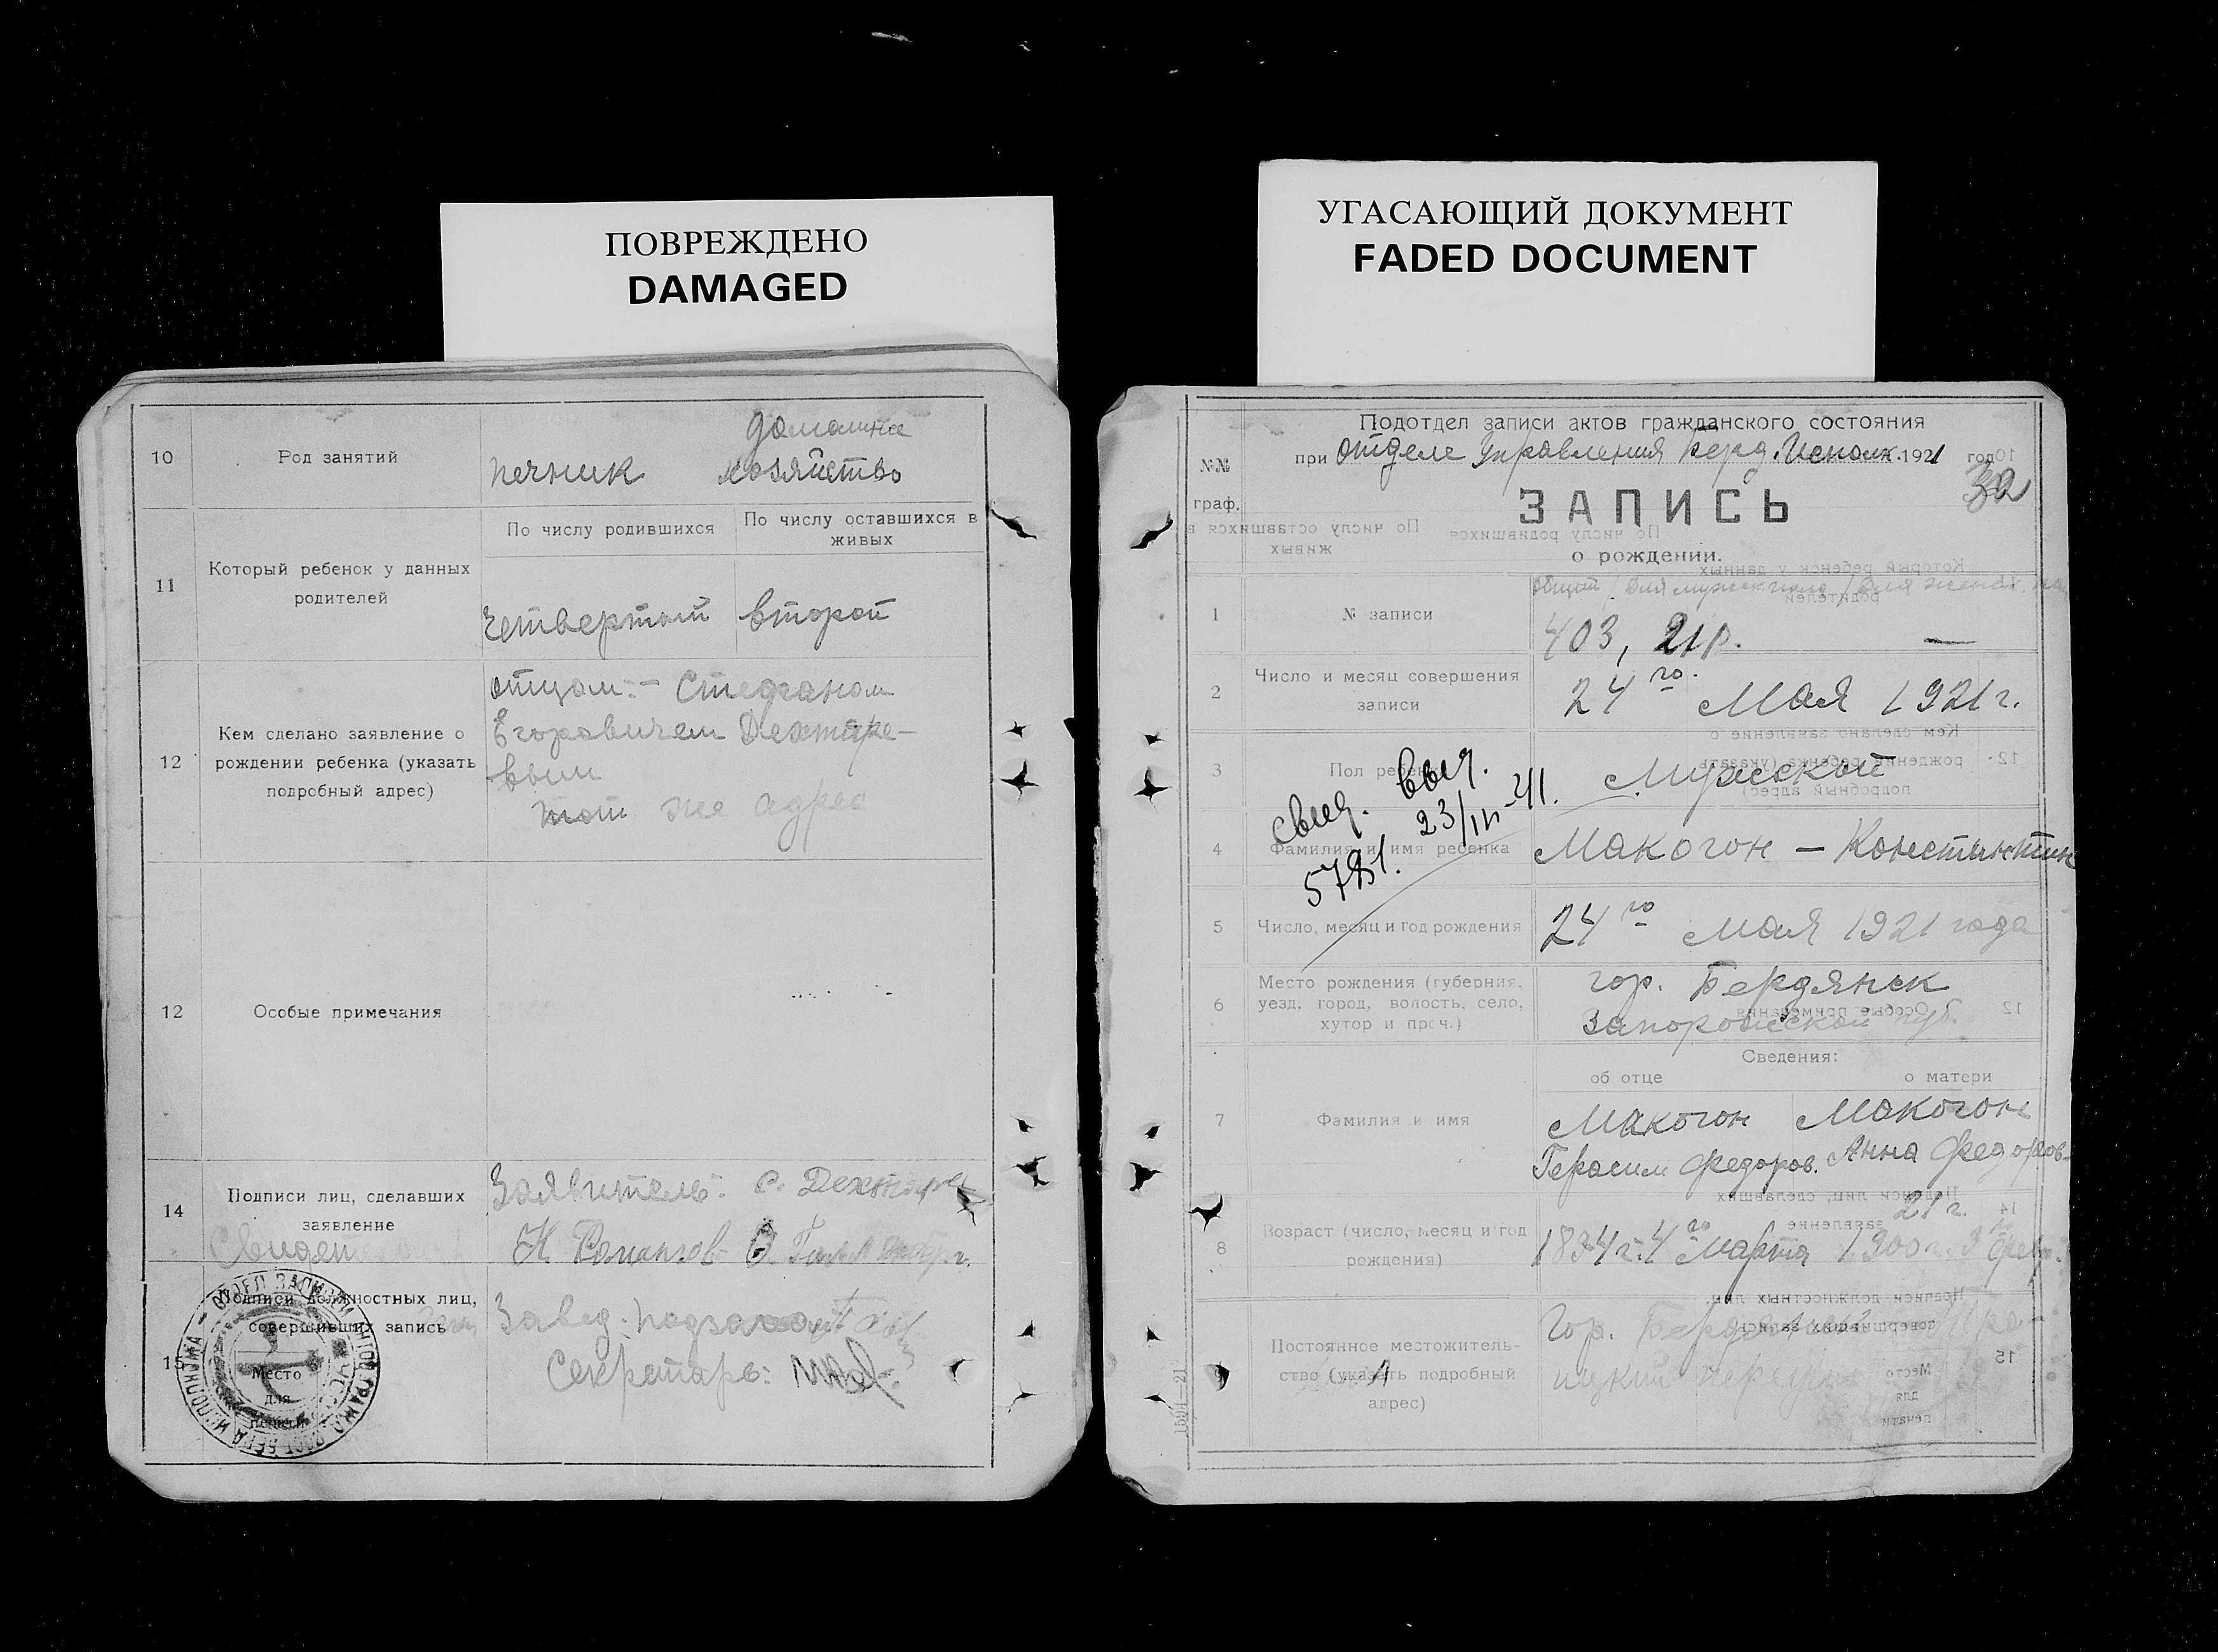 ПОВРЕЖДЕНО
DAMAGED
УГАСАЮЩИЙ ДОКУМЕНТ
FADED DOCUMENT
10
Род занятий
печник
домашнее
хозяйство
11
Который ребенок у данных
родителей
По числу родившихся
По числу оставшихся в
живых
четвертый
второй
12
Кем сделано заявление о
рождении ребенка (указать
подробный адрес)
отцом:- Стефаном
Егоровичем Дехтяре-
вым
тот же адрес
12
Особые примечания
14
Подписи лиц, сделавших
заявление
Заявитель: С. Дехтярев
Н. Романов
15
Подписи должностных лиц,
совершивших запись
Место
для
печати
Завед. подотд
Секретарь:
Подотдел записи актов гражданского состояния
при отделе Управления Берд. Исполк. 1921 год
32
№№
граф.
ЗАПИСЬ
о рождении.
1
№ записи
общий / для мужск. пола / для женск. по
403, 21 р. —
2
Число и месяц совершения
записи
24го Мая 1921 г.
3
Пол ребенка
Мужской
свид. выд.
23/III-41.
5781.
4
Фамилия и имя ребенка
Макогон — Константин
5
Число, месяц и год рождения
24го мая 1921 года
6
Место рождения (губерния,
уезд, город, волость, село,
хутор и проч.)
гор. Бердянск
Запорожской губ.
Сведения:
об отце
о матери
7
Фамилия и имя
Макогон
Герасим Федоров.
Макогон
Анна Федоров-
8
Возраст (число, месяц и год
рождения)
21 г.
1894 г. 4го Марта
1900 г. 3го февр.
9
Постоянное местожитель-
ство (указать подробный
адрес)
Гор. Бердянск